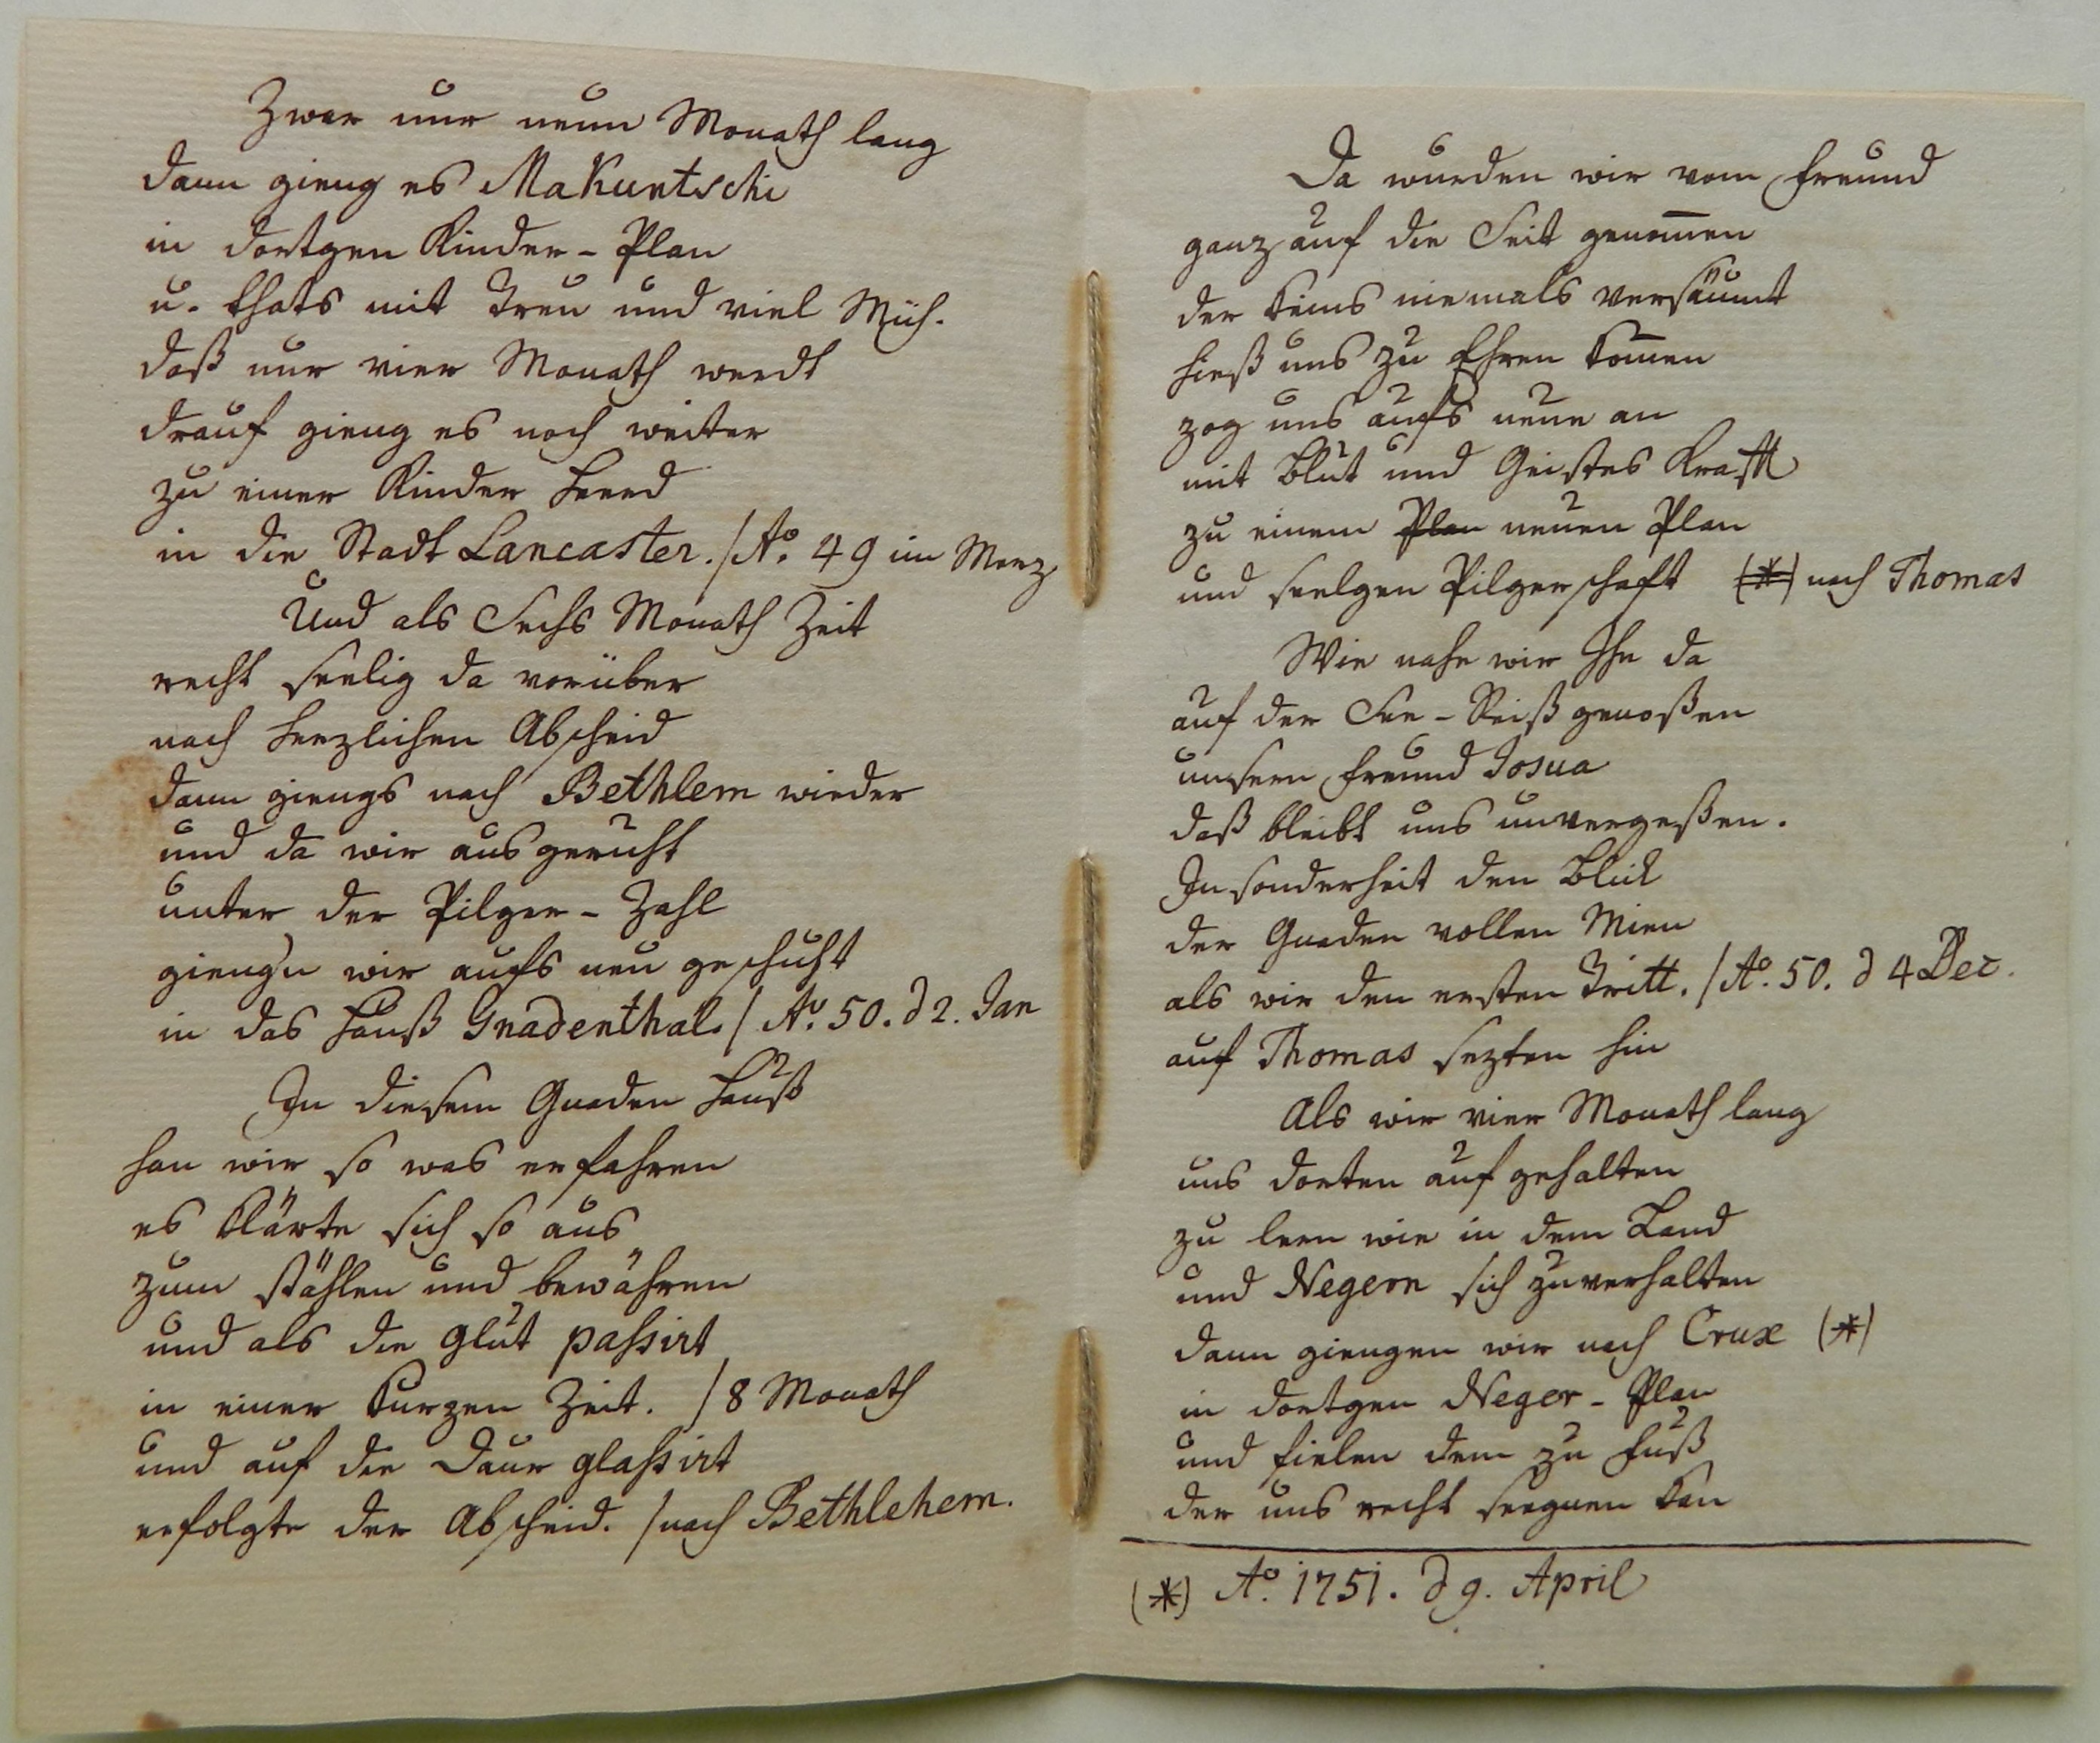 Zwar nur neun Monath lang
dann gieng es Makuntschi
in dortgen Kinder-Plan
u. thats mit Treu und viel Müh.
daß nur vier Monath werdt
drauf gieng es noch weiter
zu einer Kinder Heerd
in die Stadt Lancaster. / Aº. 49 im Merz
Und als Sechs Monath Zeit
recht seelig da vorüber
nach herzlichen Abscheid
dann giengs nach Bethlem wieder
und da wir ausgeruht
unter der Pilger-Zahl
gieng'n wir aufs neu geschuht
in das Hauß Gnadenthal. / Aº. 50. d 2. Jan
In diesem Gnaden Hauß
han wir so was erfahren
es klärte sich so aus
zum stählen und bewähren
und als die Glut passirt
in einer kurzen Zeit. / 8 Monath
und auf die Daur glassirt
erfolgte der Abscheid. / nach Bethlehem.
Da wurden wir vom Freund
ganz auf die Seit genom̅en
der keins niemals versäumt
hieß uns zu Ehren kom̅en
zog uns aufs neue an
mit Blut und Geistes Krafft
zu einem Plan neuen Plan
und seelgen Pilgerschaft (*) nach Thomas
Wie nahe wir Ihn da
auf der See-Reiß genoßen
unsern Freund Josua
daß bleibt uns unvergeßen.
In sonderheit den Blick
der Gnaden vollen Mien
als wir den ersten Tritt. / Aº. 50. d 4 Dec.
auf Thomas sezten hin
Als wir vier Monath lang
uns dorten auf gehalten
zu lern wie in dem Land
und Negern sich zuverhalten
dann giengen wir nach Crux (*)
in dortgen Neger-Plan
und fielen dem zu Fuß
der uns recht seegnen kan
(*) Aº. 1751. d 9. April